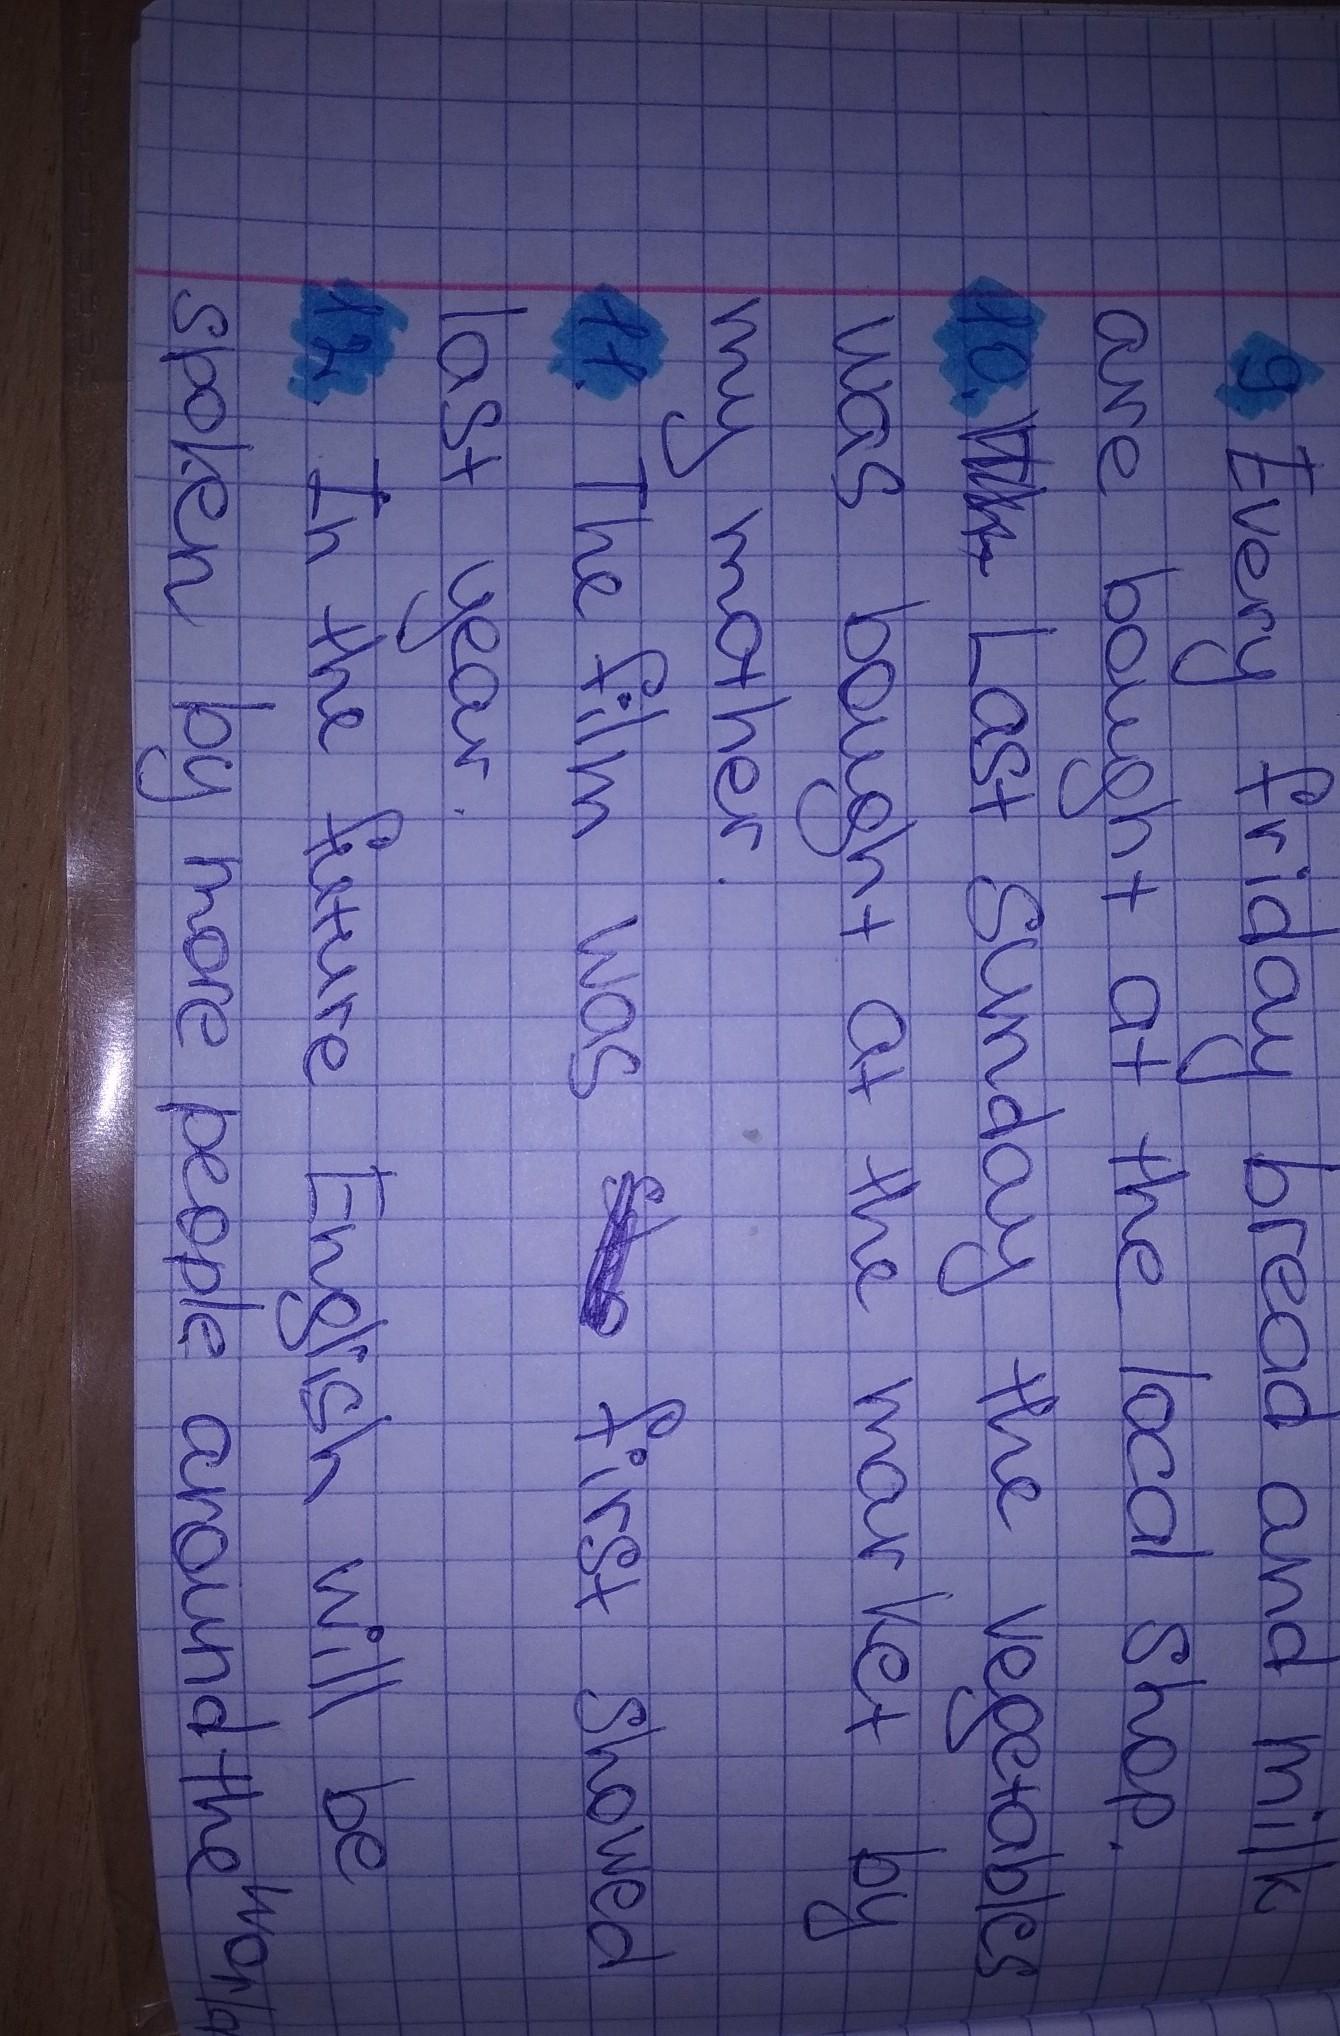 9. Every friday bread and milk
are bought at the local shop.
10. Last Sunday the vegetables
was bought at the market by
my mother.
11. The film was first showed
last year.
12. In the future English will be
spoken by more people around the world